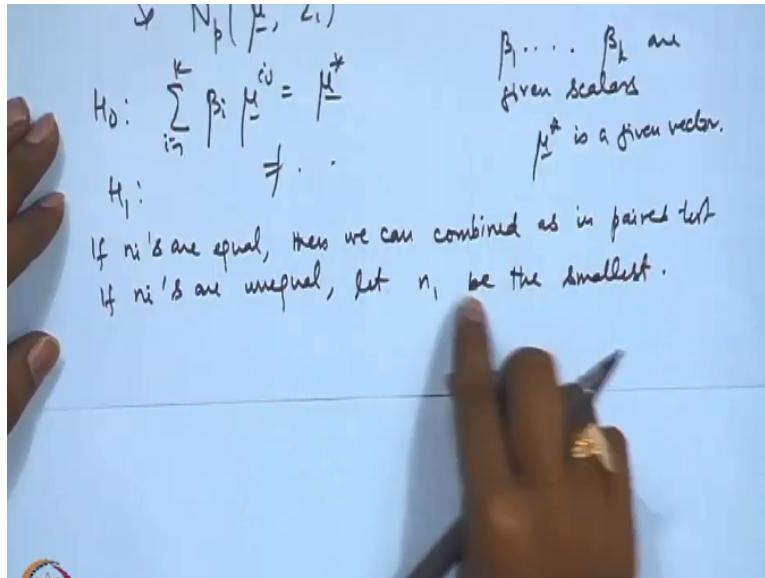 N_p(μ, Σ_i)
β_1 .... β_k are
given scalars
H_0: Σ_{i=1}^{k} β_i μ^{(i)} = μ*
μ* is a given vector.
H_1: ≠ . .
If ni's are equal, then we can combined as in paired test
If ni's are unequal, let n_1 be the smallest.